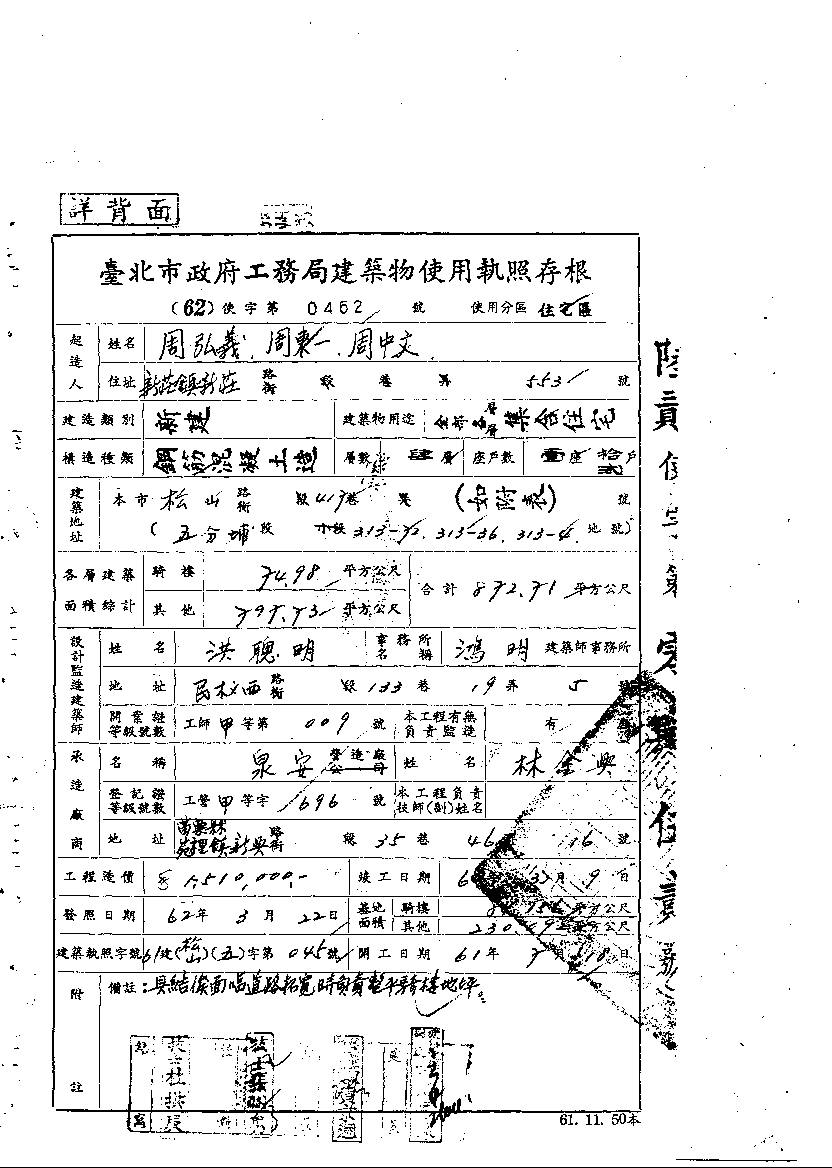 詳背面
臺北市政府工務局建築物使用執照存根
(62)使字第 0452 號 使用分區 住宅區
起造人 姓名 周弘義、周東一、周中文
住址 新莊鎮新莊 路街 段 巷 弄 553 號
建造類別 新建 建築物用途 集合住宅
構造種類 鋼筋混凝土造 層數 肆層 座戶數 壹座 戶
建築地址 本市 松山 路街 段 417巷 弄 (如附表) 號
(五分埔段 小段 313-32, 313-36, 313-4 地號)
各層建築面積綜計 騎樓 74.98 平方公尺 合計 872.71 平方公尺
其他 797.73 平方公尺
設計監造建築師 姓名 洪聰明 事務所名稱 鴻明 建築師事務所
地址 民权西 路街 段 133 巷 19 弄 5 號
開業證等級號數 工師甲等第 009 號 本工程有無負責監造 有
承造廠商 名稱 泉安 營造廠公司 姓名 林金興
登記證等級號數 工營甲等字 1696 號 本工程負責技師(副)姓名
地址 苗栗縣苑裡鎮新興 路街 段 35 巷 46 16 號
工程造價 1,510,000.- 竣工日期 月 9 日
發照日期 62年 3月 22日 基地面積 騎樓 平方公尺
其他 平方公尺
建築執照字號 61建(松山)(五)字第 045號 開工日期 61年 月 日
附註 備註:具結俟面臨道路拓寬時負責整平騎樓地坪。
61. 11. 50本